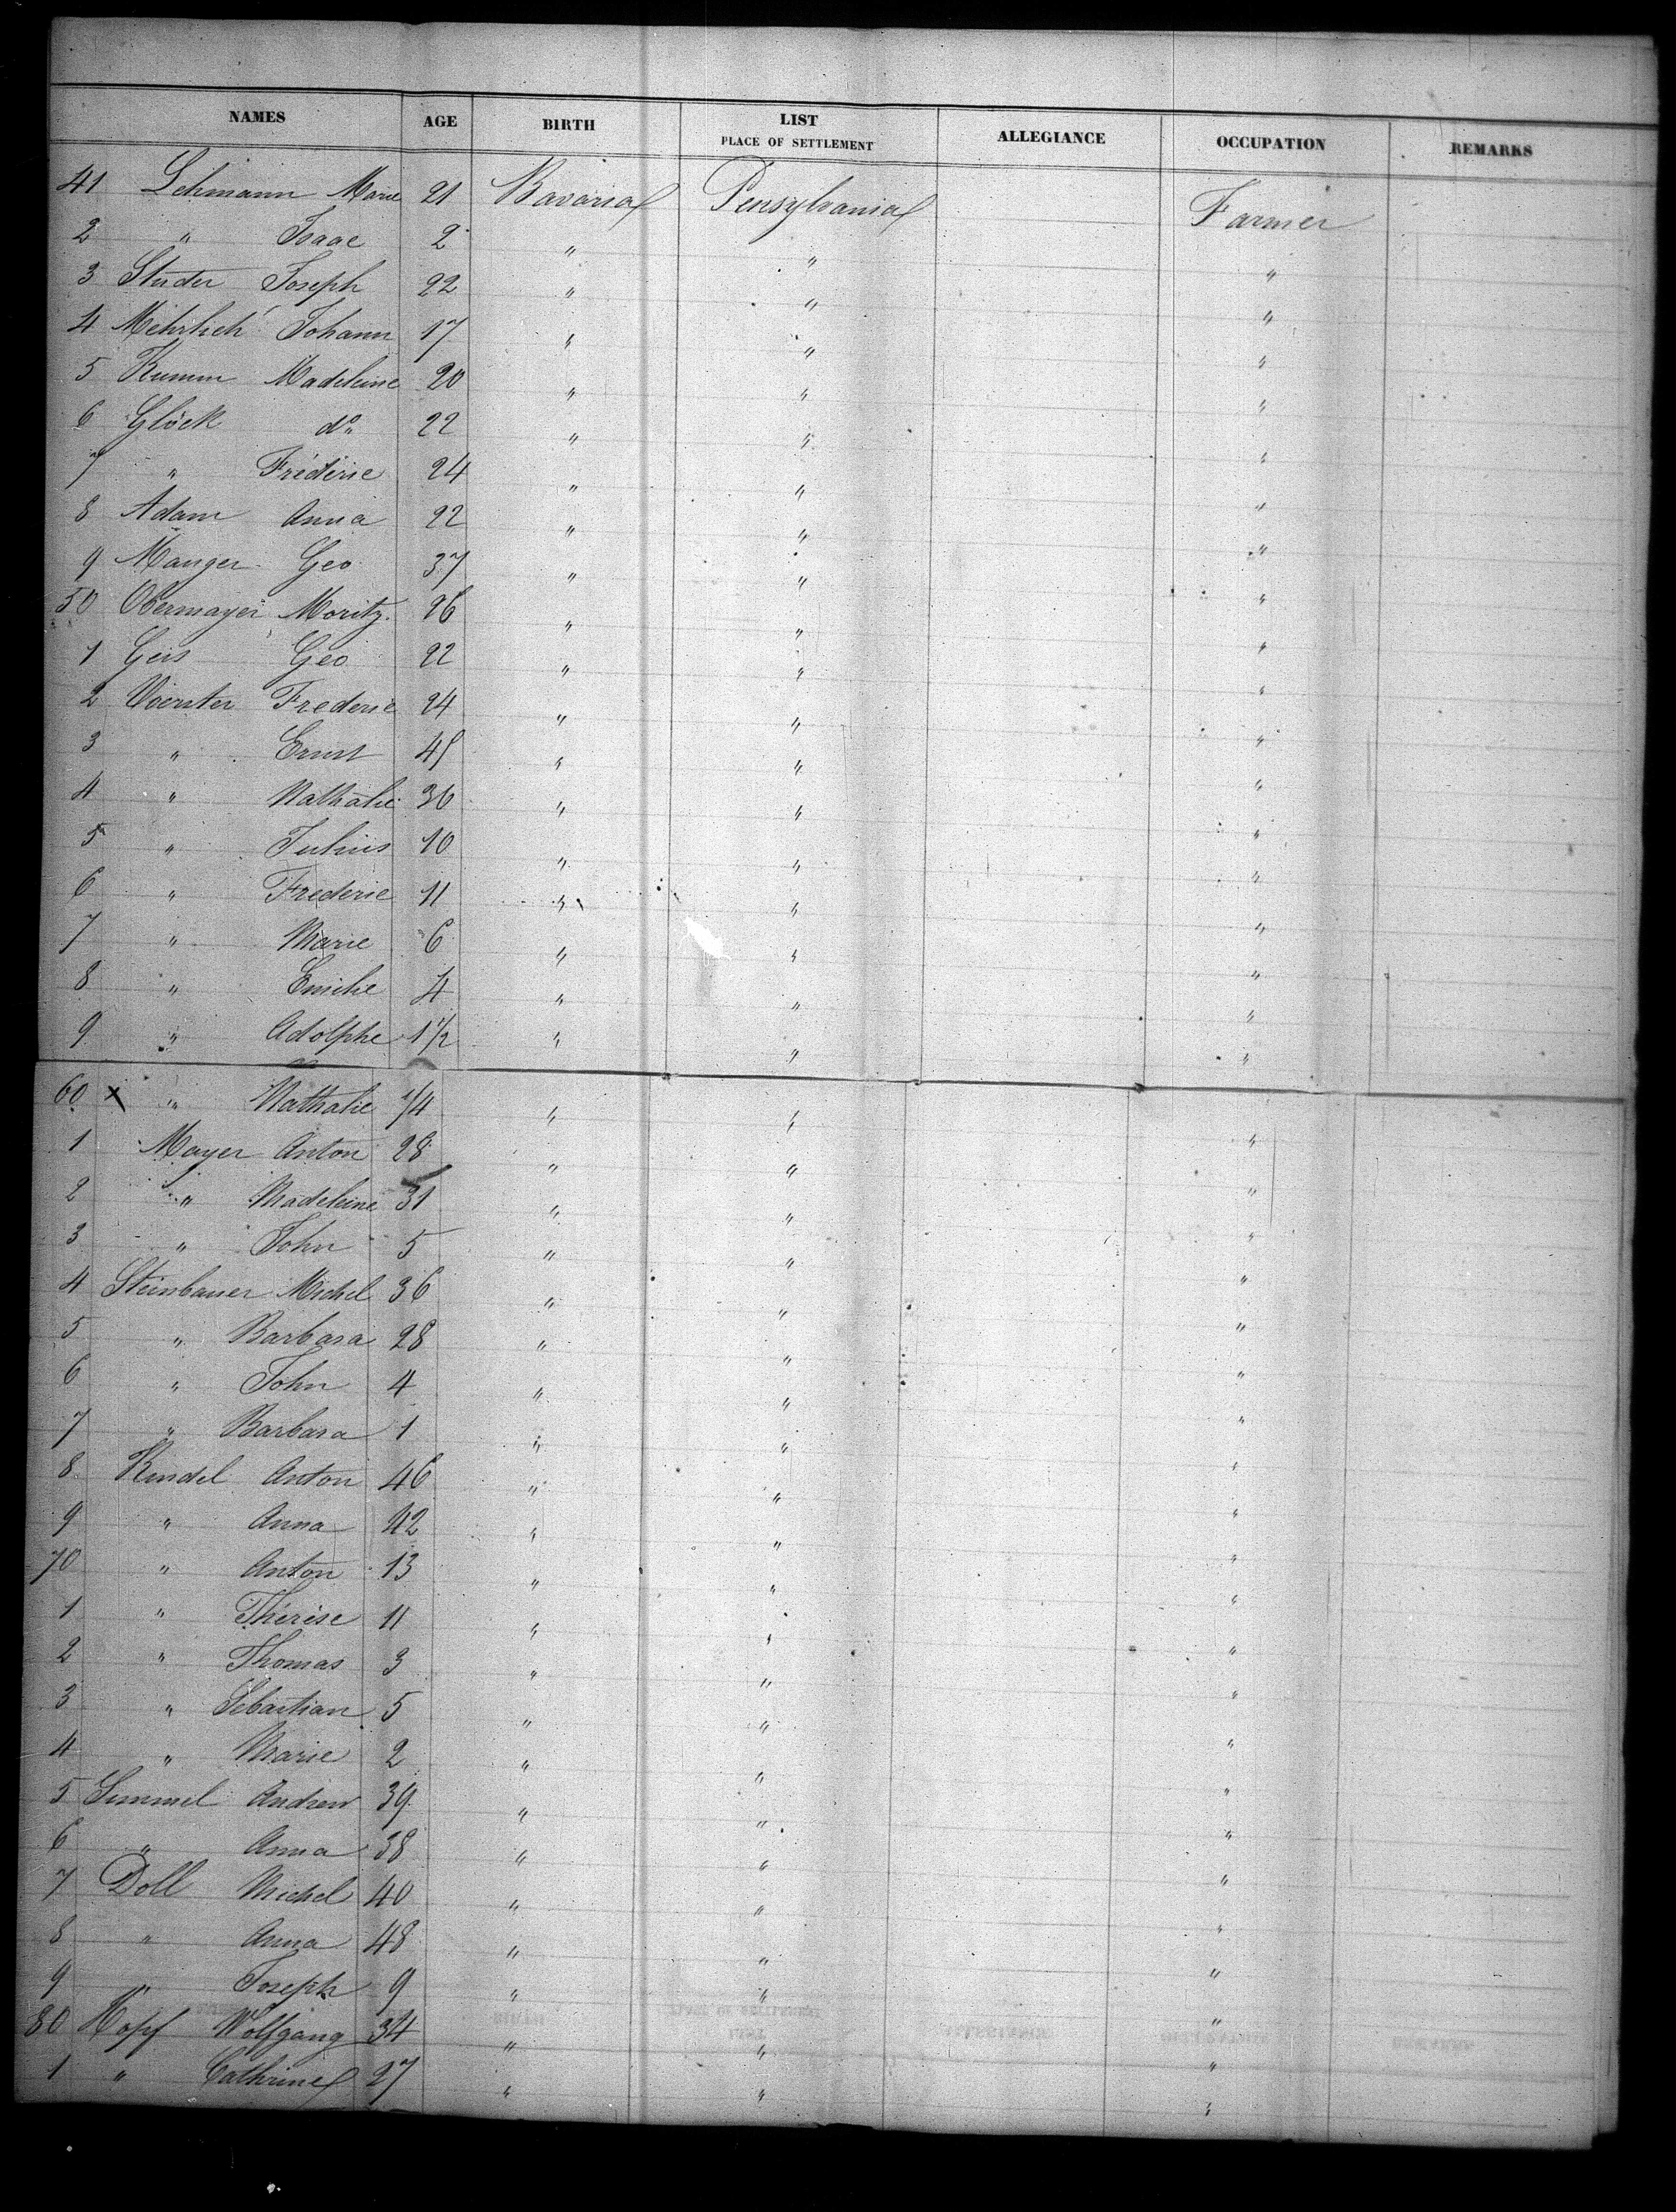 NAMES AGE BIRTH LIST PLACE OF SETTLEMENT ALLEGIANCE OCCUPATION REMARKS
41 Lehmann Marie 21 Bavaria Pensylvania Farmer
2 " Isaac 2 " " "
3 Studer Joseph 22 " " "
4 Mehrlich Johann 17 " " "
5 Kumm Madeleine 20 " " "
6 Glöck do 22 " " "
7 " Fréderic 24 " " "
8 Adam Anna 22 " " "
9 Manger Geo 37 " " "
50 Obermayer Moritz 26 " " "
1 Geis Geo 22 " " "
2 Voerster Frederic 24 " " "
3 " Ernst 45 " " "
4 " Nathalie 36 " " "
5 " Julius 10 " " "
6 " Frederic 11 " " "
7 " Marie 6 " " "
8 " Emilie 4 " " "
9 " Adolphe 1 1/2 " " "
60 x " Nathalie 1/4 " " "
1 Mayer Anton 28 " " "
2 " Madeleine 31 " " "
3 " John 5 " " "
4 Steinbauer Michel 36 " " "
5 " Barbara 28 " " "
6 " John 4 " " "
7 " Barbara 1 " " "
8 Kindel Anton 46 " " "
9 " Anna 42 " " "
70 " Anton 13 " " "
1 " Thérèse 11 " " "
2 " Thomas 3 " " "
3 " Sebastian 5 " " "
4 " Marie 2 " " "
5 Simmel Andrew 39 " " "
6 " Anna 38 " " "
7 Doll Michel 40 " " "
8 " Anna 48 " " "
9 " Joseph 9 " " "
80 Hopf Wolfgang 34 " " "
1 " Cathrine 27 " " "